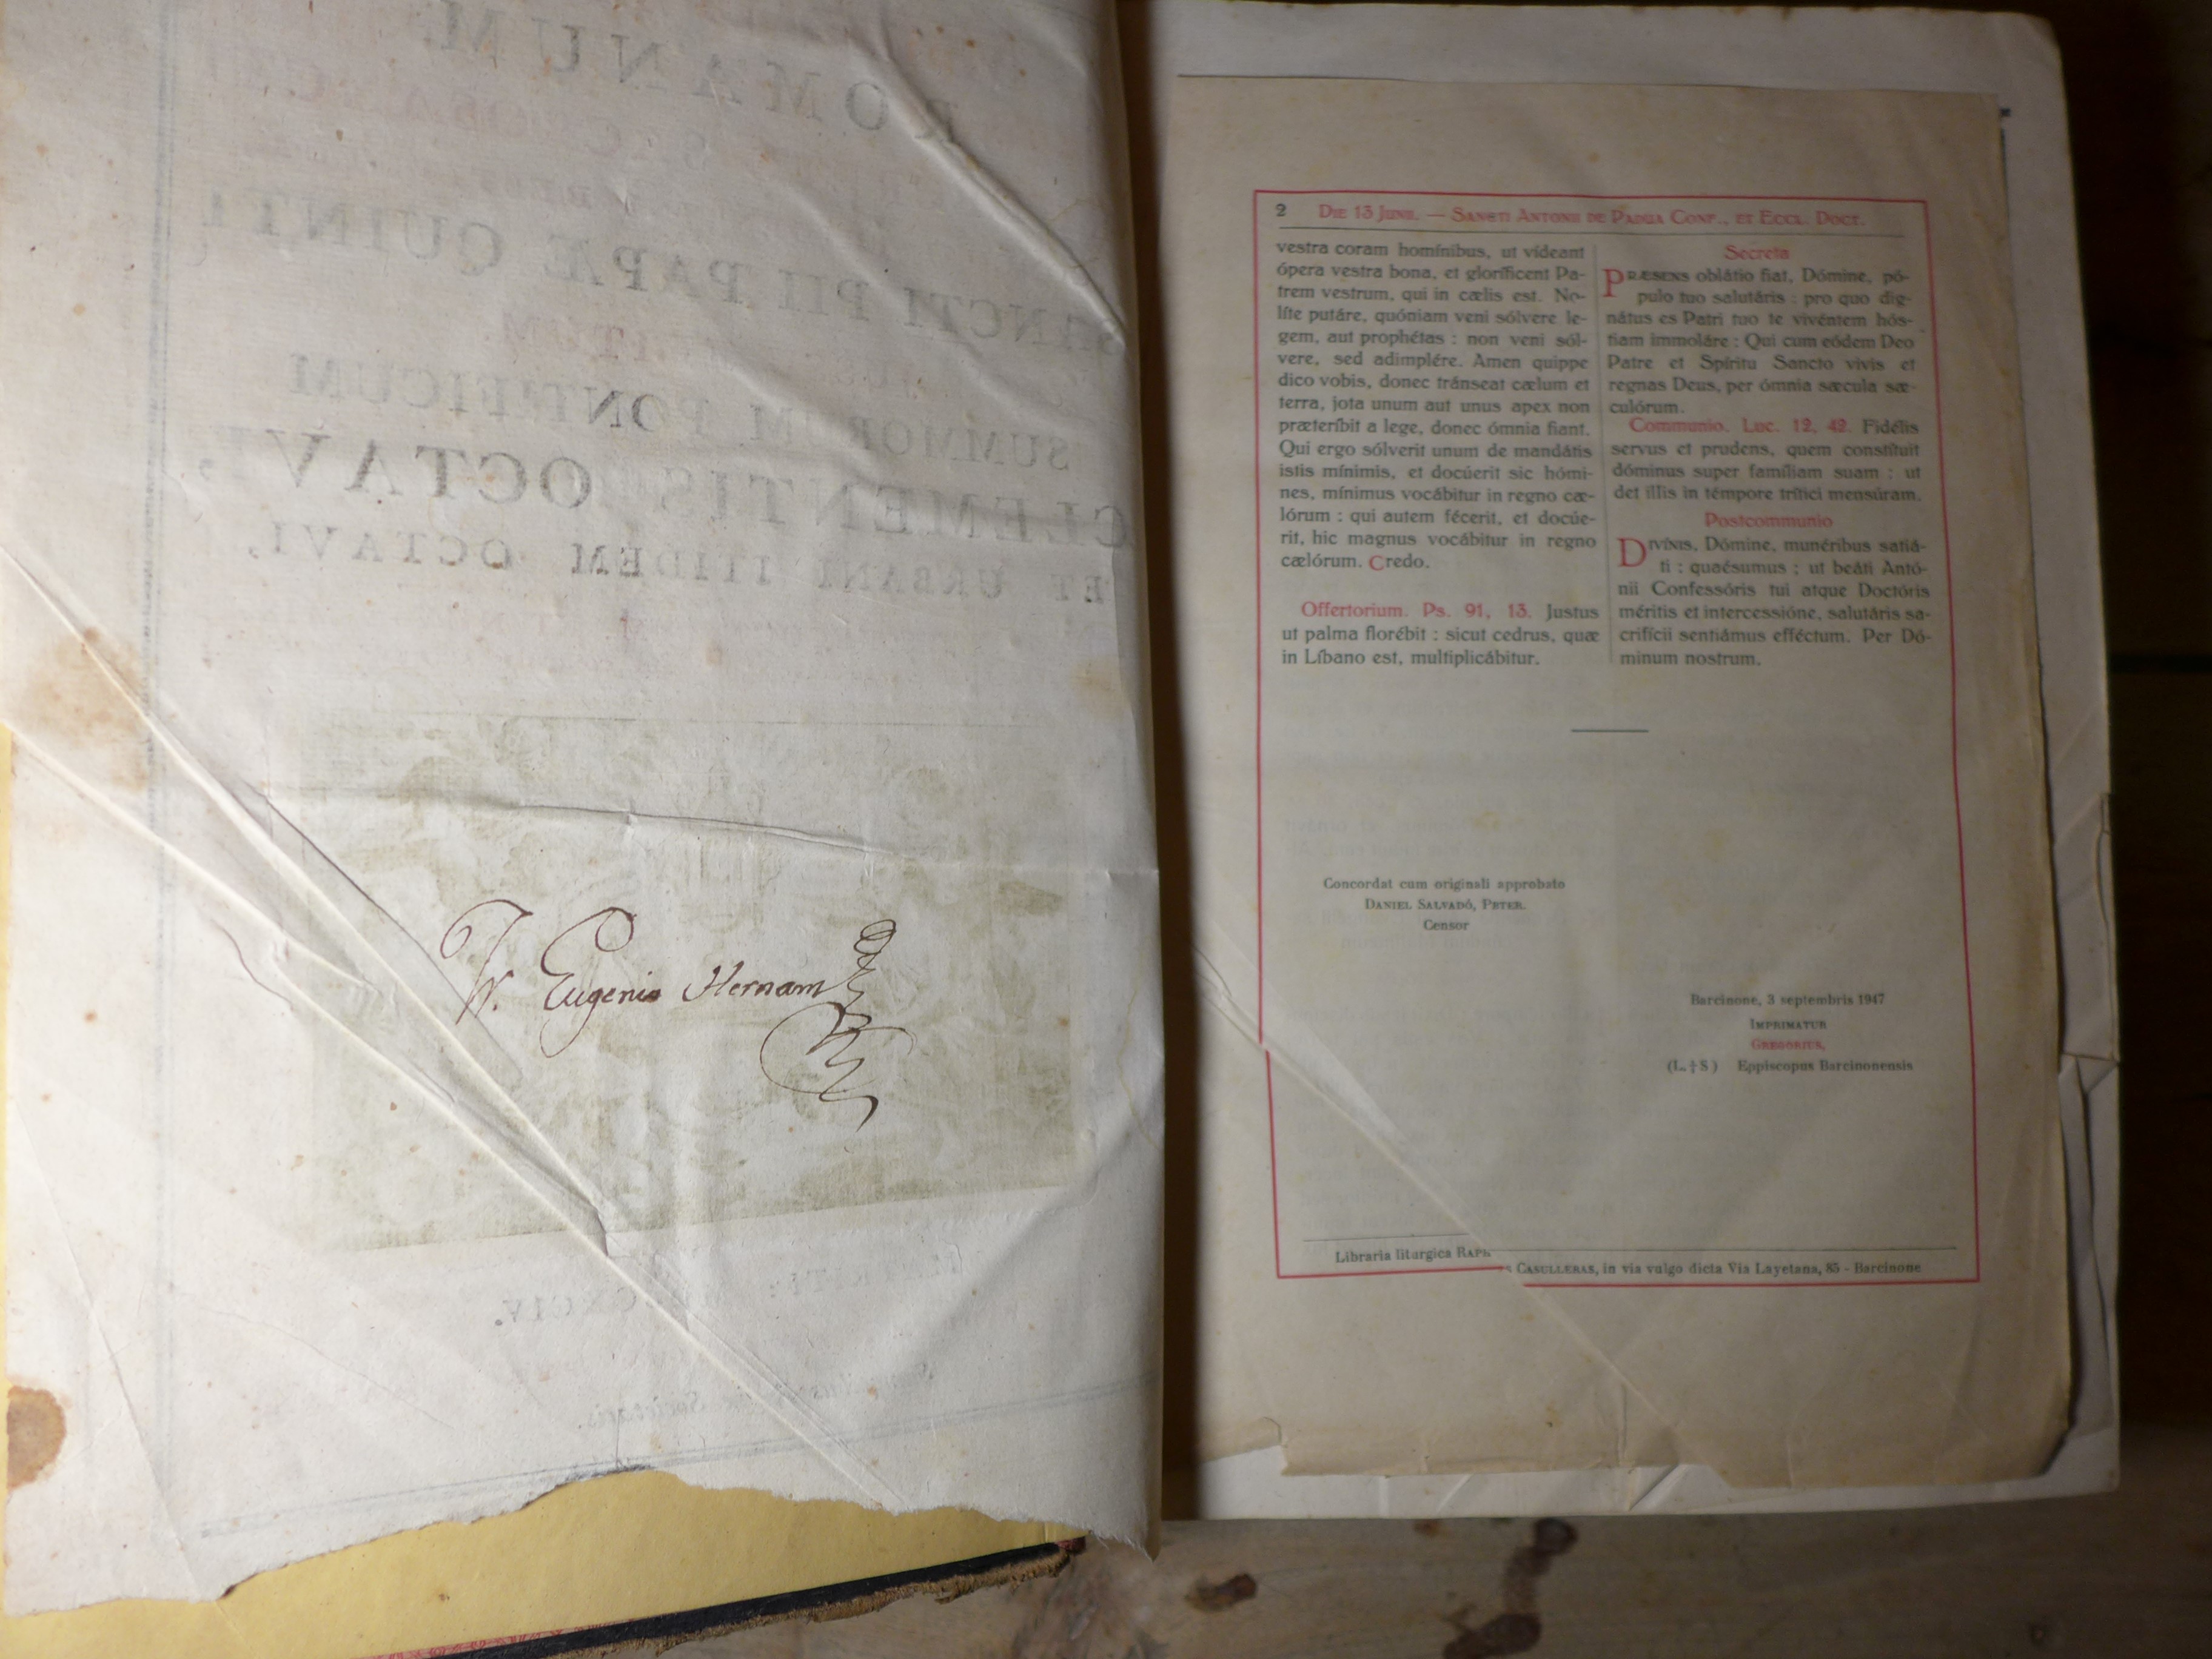 ROMANUM
SANCTI PII PAPÆ QUINTI
SUMMORUM PONTIFICUM
CLEMENTIS OCTAVI,
ET URBANI ITIDEM OCTAVI,
Eugenio Hernam
Societatis.
2 Die 13 Junii. — Sancti Antonii de Padua Conf., et Eccl. Doct.
vestra coram homínibus, ut vídeant
ópera vestra bona, et gloríficent Pa-
trem vestrum, qui in cælis est. No-
líte putáre, quóniam veni sólvere le-
gem, aut prophétas : non veni sól-
vere, sed adimplére. Amen quippe
dico vobis, donec tránseat cælum et
terra, jota unum aut unus apex non
præteríbit a lege, donec ómnia fiant.
Qui ergo sólverit unum de mandátis
istis mínimis, et docúerit sic hómi-
nes, mínimus vocábitur in regno cæ-
lórum : qui autem fécerit, et docúe-
rit, hic magnus vocábitur in regno
cælórum. Credo.
Offertorium. Ps. 91, 13. Justus
ut palma florébit : sicut cedrus, quæ
in Líbano est, multiplicábitur.
Secreta
Præsens oblátio fiat, Dómine, pó-
pulo tuo salutáris : pro quo dig-
nátus es Patri tuo te vivéntem hós-
tiam immoláre : Qui cum eódem Deo
Patre et Spíritu Sancto vivis et
regnas Deus, per ómnia sæcula sæ-
culórum.
Communio. Luc. 12, 42. Fidélis
servus et prudens, quem constítuit
dóminus super famíliam suam : ut
det illis in témpore trítici mensúram.
Postcommunio
Divínis, Dómine, munéribus satiá-
ti : quaésumus ; ut beáti Antó-
nii Confessóris tui atque Doctóris
méritis et intercessióne, salutáris sa-
crifícii sentiámus efféctum. Per Dó-
minum nostrum.
Concordat cum originali approbato
Daniel Salvadó, Pbter.
Censor
Barcinone, 3 septembris 1947
Imprimatur
Gregorius,
(L.†S) Eppiscopus Barcinonensis
Libraria liturgica Raph
Casulleras, in via vulgo dicta Via Layetana, 85 - Barcinone